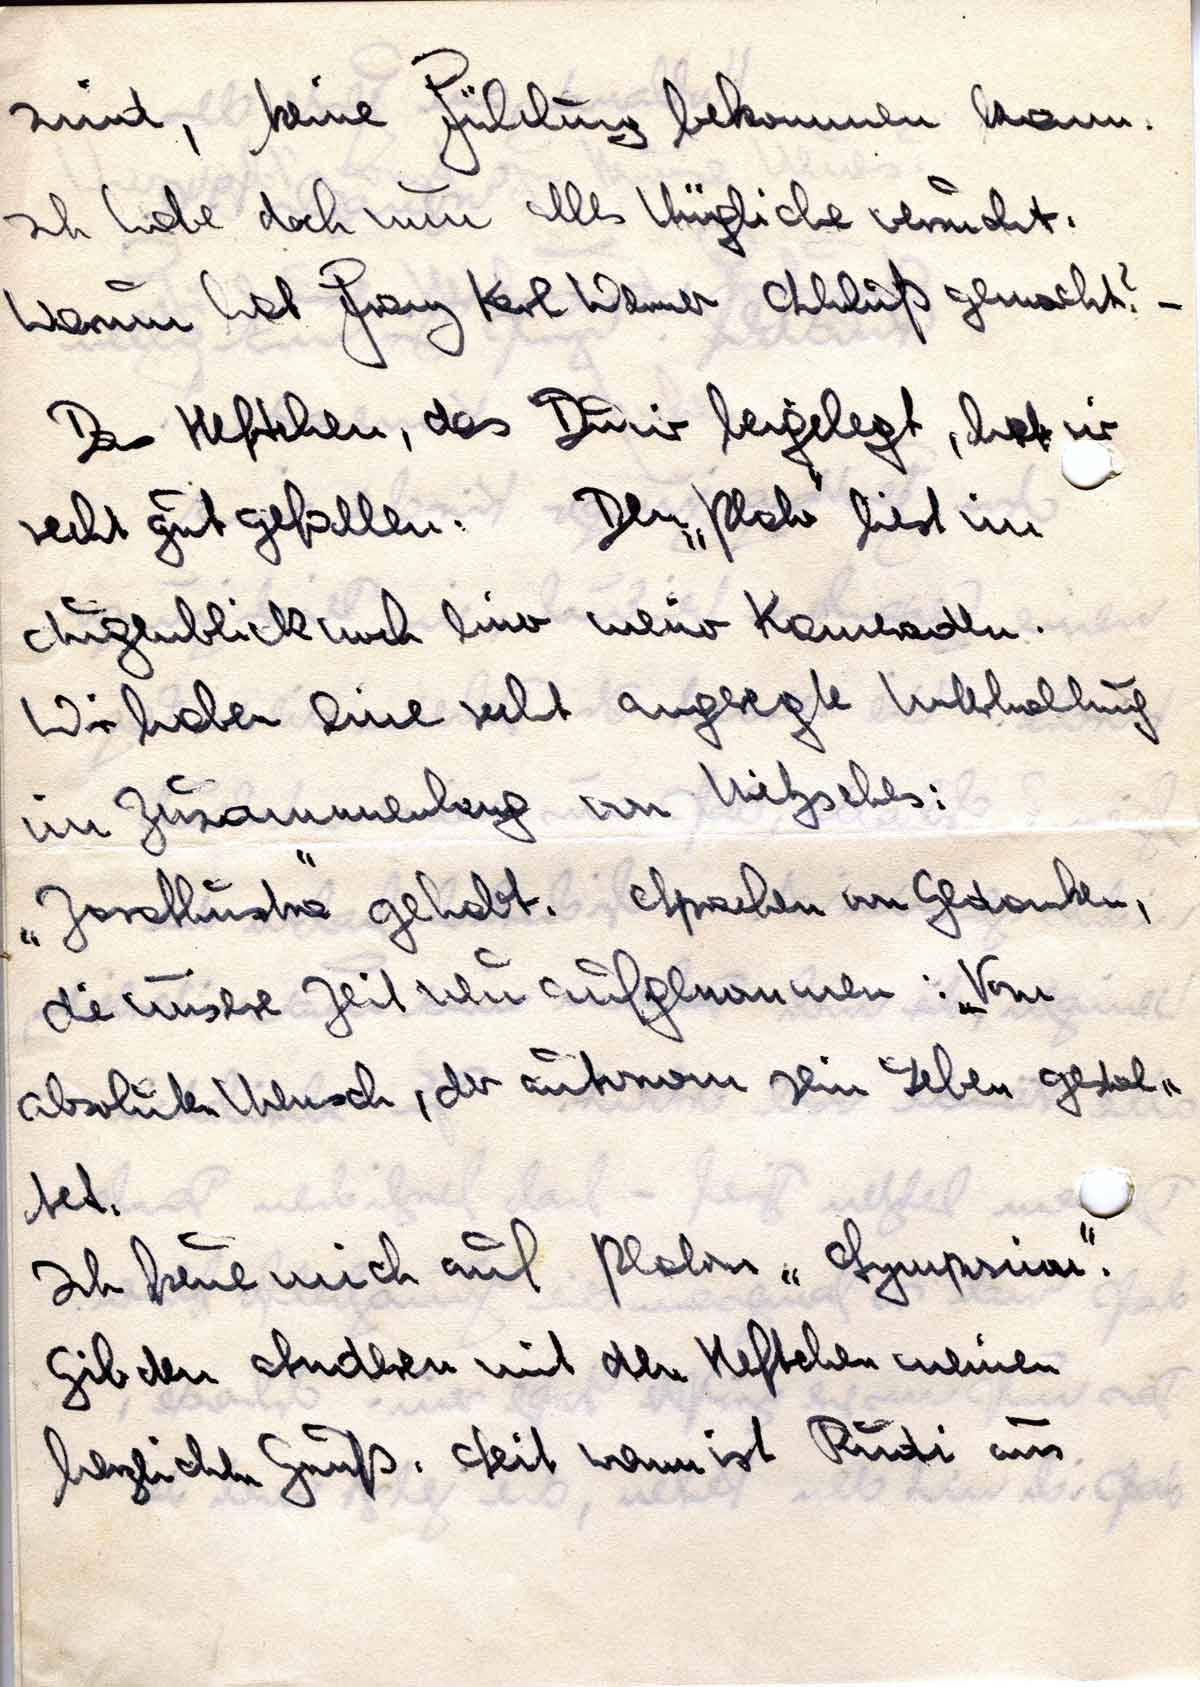 sind, keine Fühlung bekommen kann.
Ich habe doch nun alles Mögliche versucht.
Warum hat Franz Karl Werner Schluß gemacht? –
Das Heftchen, das Du mir beigelegt, hat mir
recht gut gefallen. Den „Plato" liest im
Augenblick noch einer meiner Kameraden.
Wir haben eine recht angeregte Unterhaltung
im Zusammenhang von Nietzsches:
„Zarathustra" gehabt. Sprachen von Gedanken,
die unsere Zeit neu aufgenommen: „Vom
absoluten Mensch, der autonom sein Leben gestal-
tet.
Ich freue mich auf Platons „Symposion".
Gib den Anderen mit den Heftchen meinen
herzlichen Gruß. Seit wann ist Rudi aus